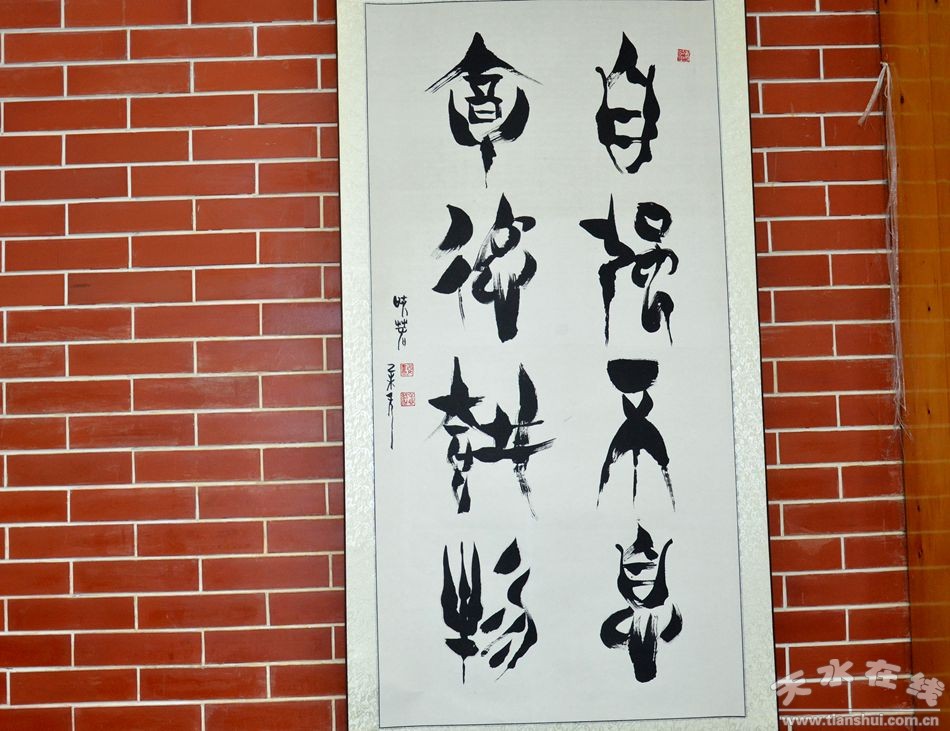 自强不息
厚德載物
天水在线
www.tianshui.com.cn